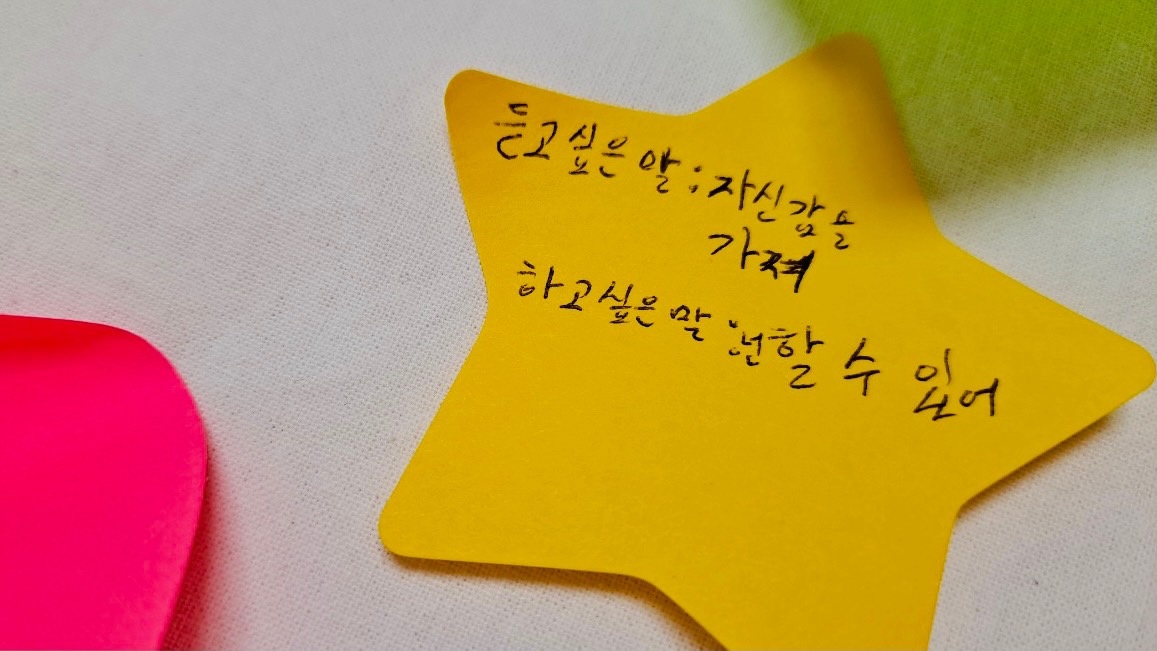 듣고싶은 말 : 자신감을
가져
하고싶은 말 : 넌 할 수 있어